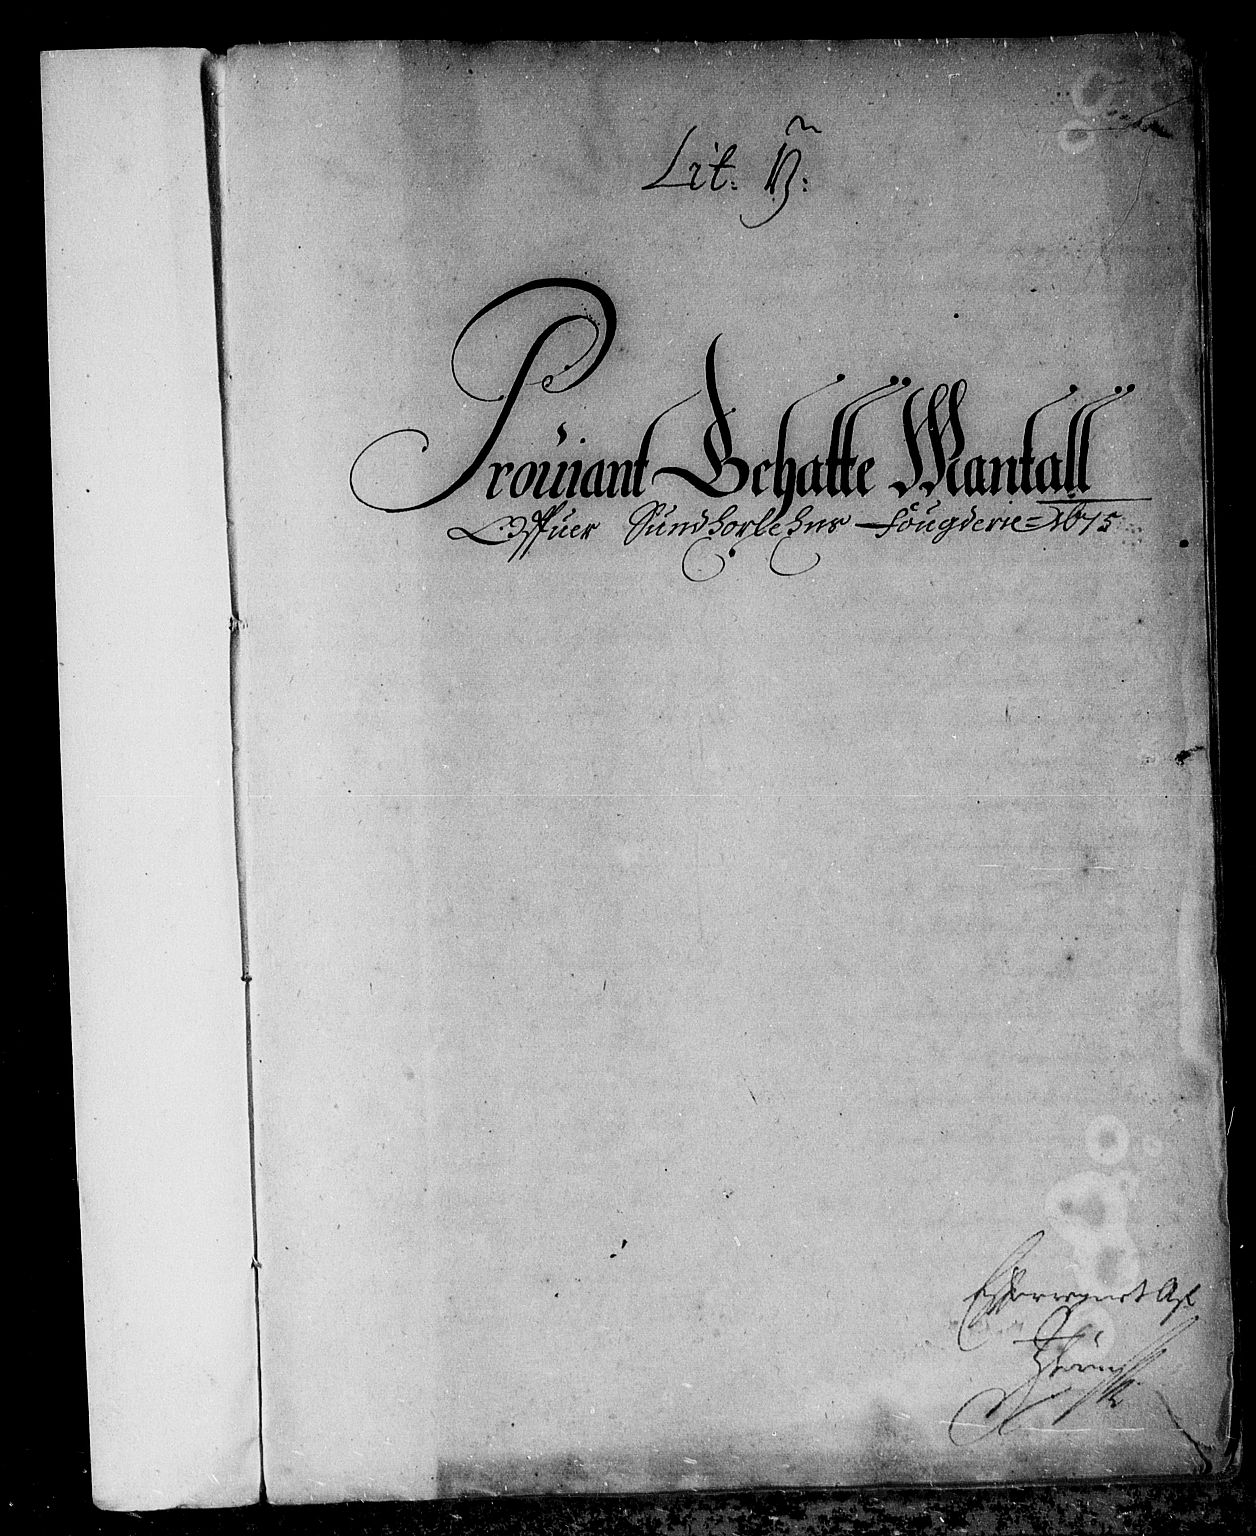 Lit: B:
Prouiant Schatte Mantall
Offuer Sundhorlehns fougderie 1675
Efterregnet Af